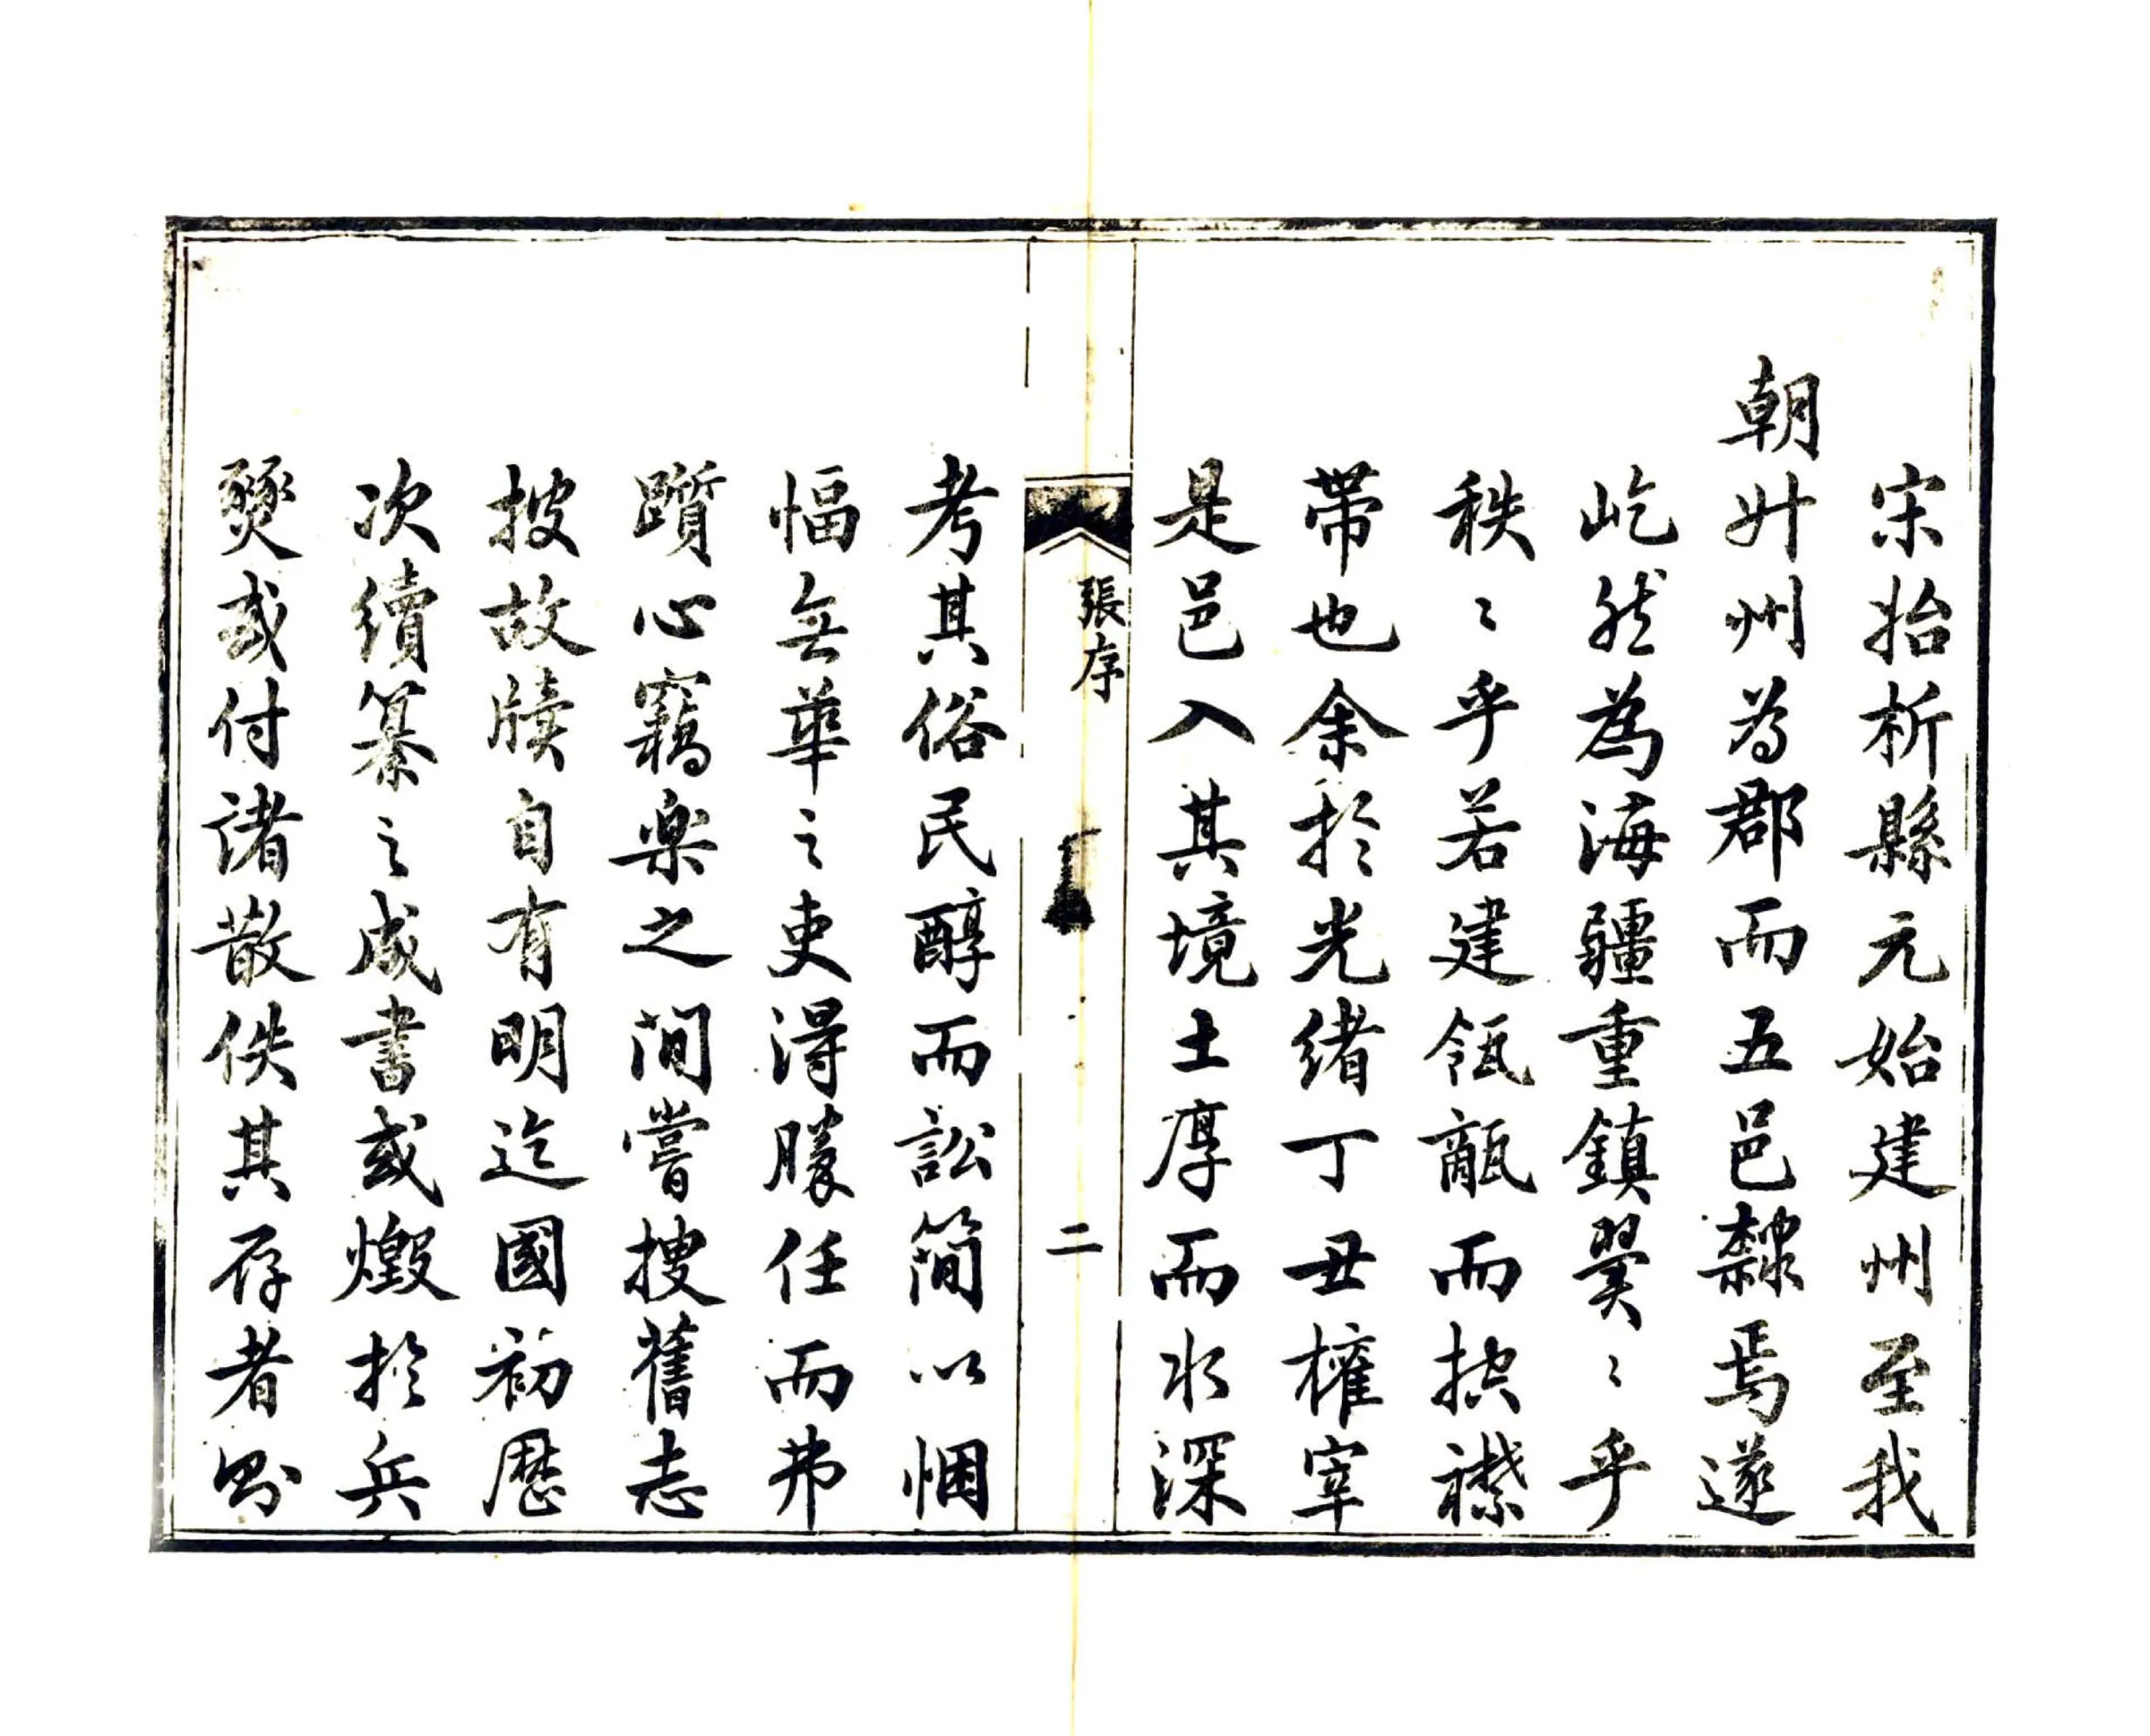 宋始析縣元始建州至我
朝升州為郡而五邑隸焉遂
屹然為海疆重鎮翼〻乎
秩〻乎若建瓴甋而控襟
帶也余於光緒丁丑榷宰
是邑入其境土厚而水深
張序
二
考其俗民醇而訟簡以悃
愊無華之吏得勝任而弗
躓心竊樂之間嘗搜舊志
披故牘自有明迄國初歷
次續纂之成書或燬於兵
燹或付諸散佚其存者則